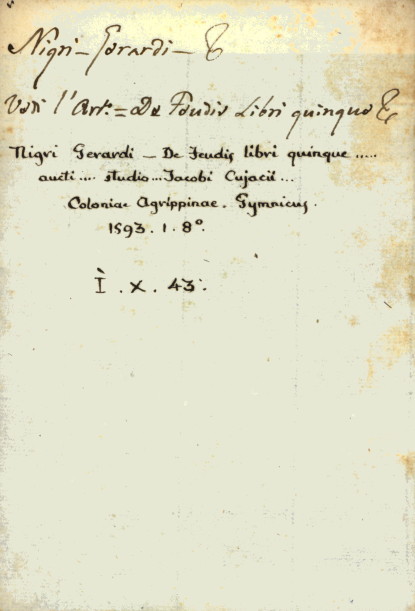 Nigri - Gerardi - &
Vedi l'Art.= De Feudis Libri quinque &
Nigri Gerardi — De Feudis libri quinque .....
aucti .... studio ... Jacobi Cujacii ...
Coloniae Agrippinae. Gymnicus.
1593. 1. 8°.
I . X . 43.